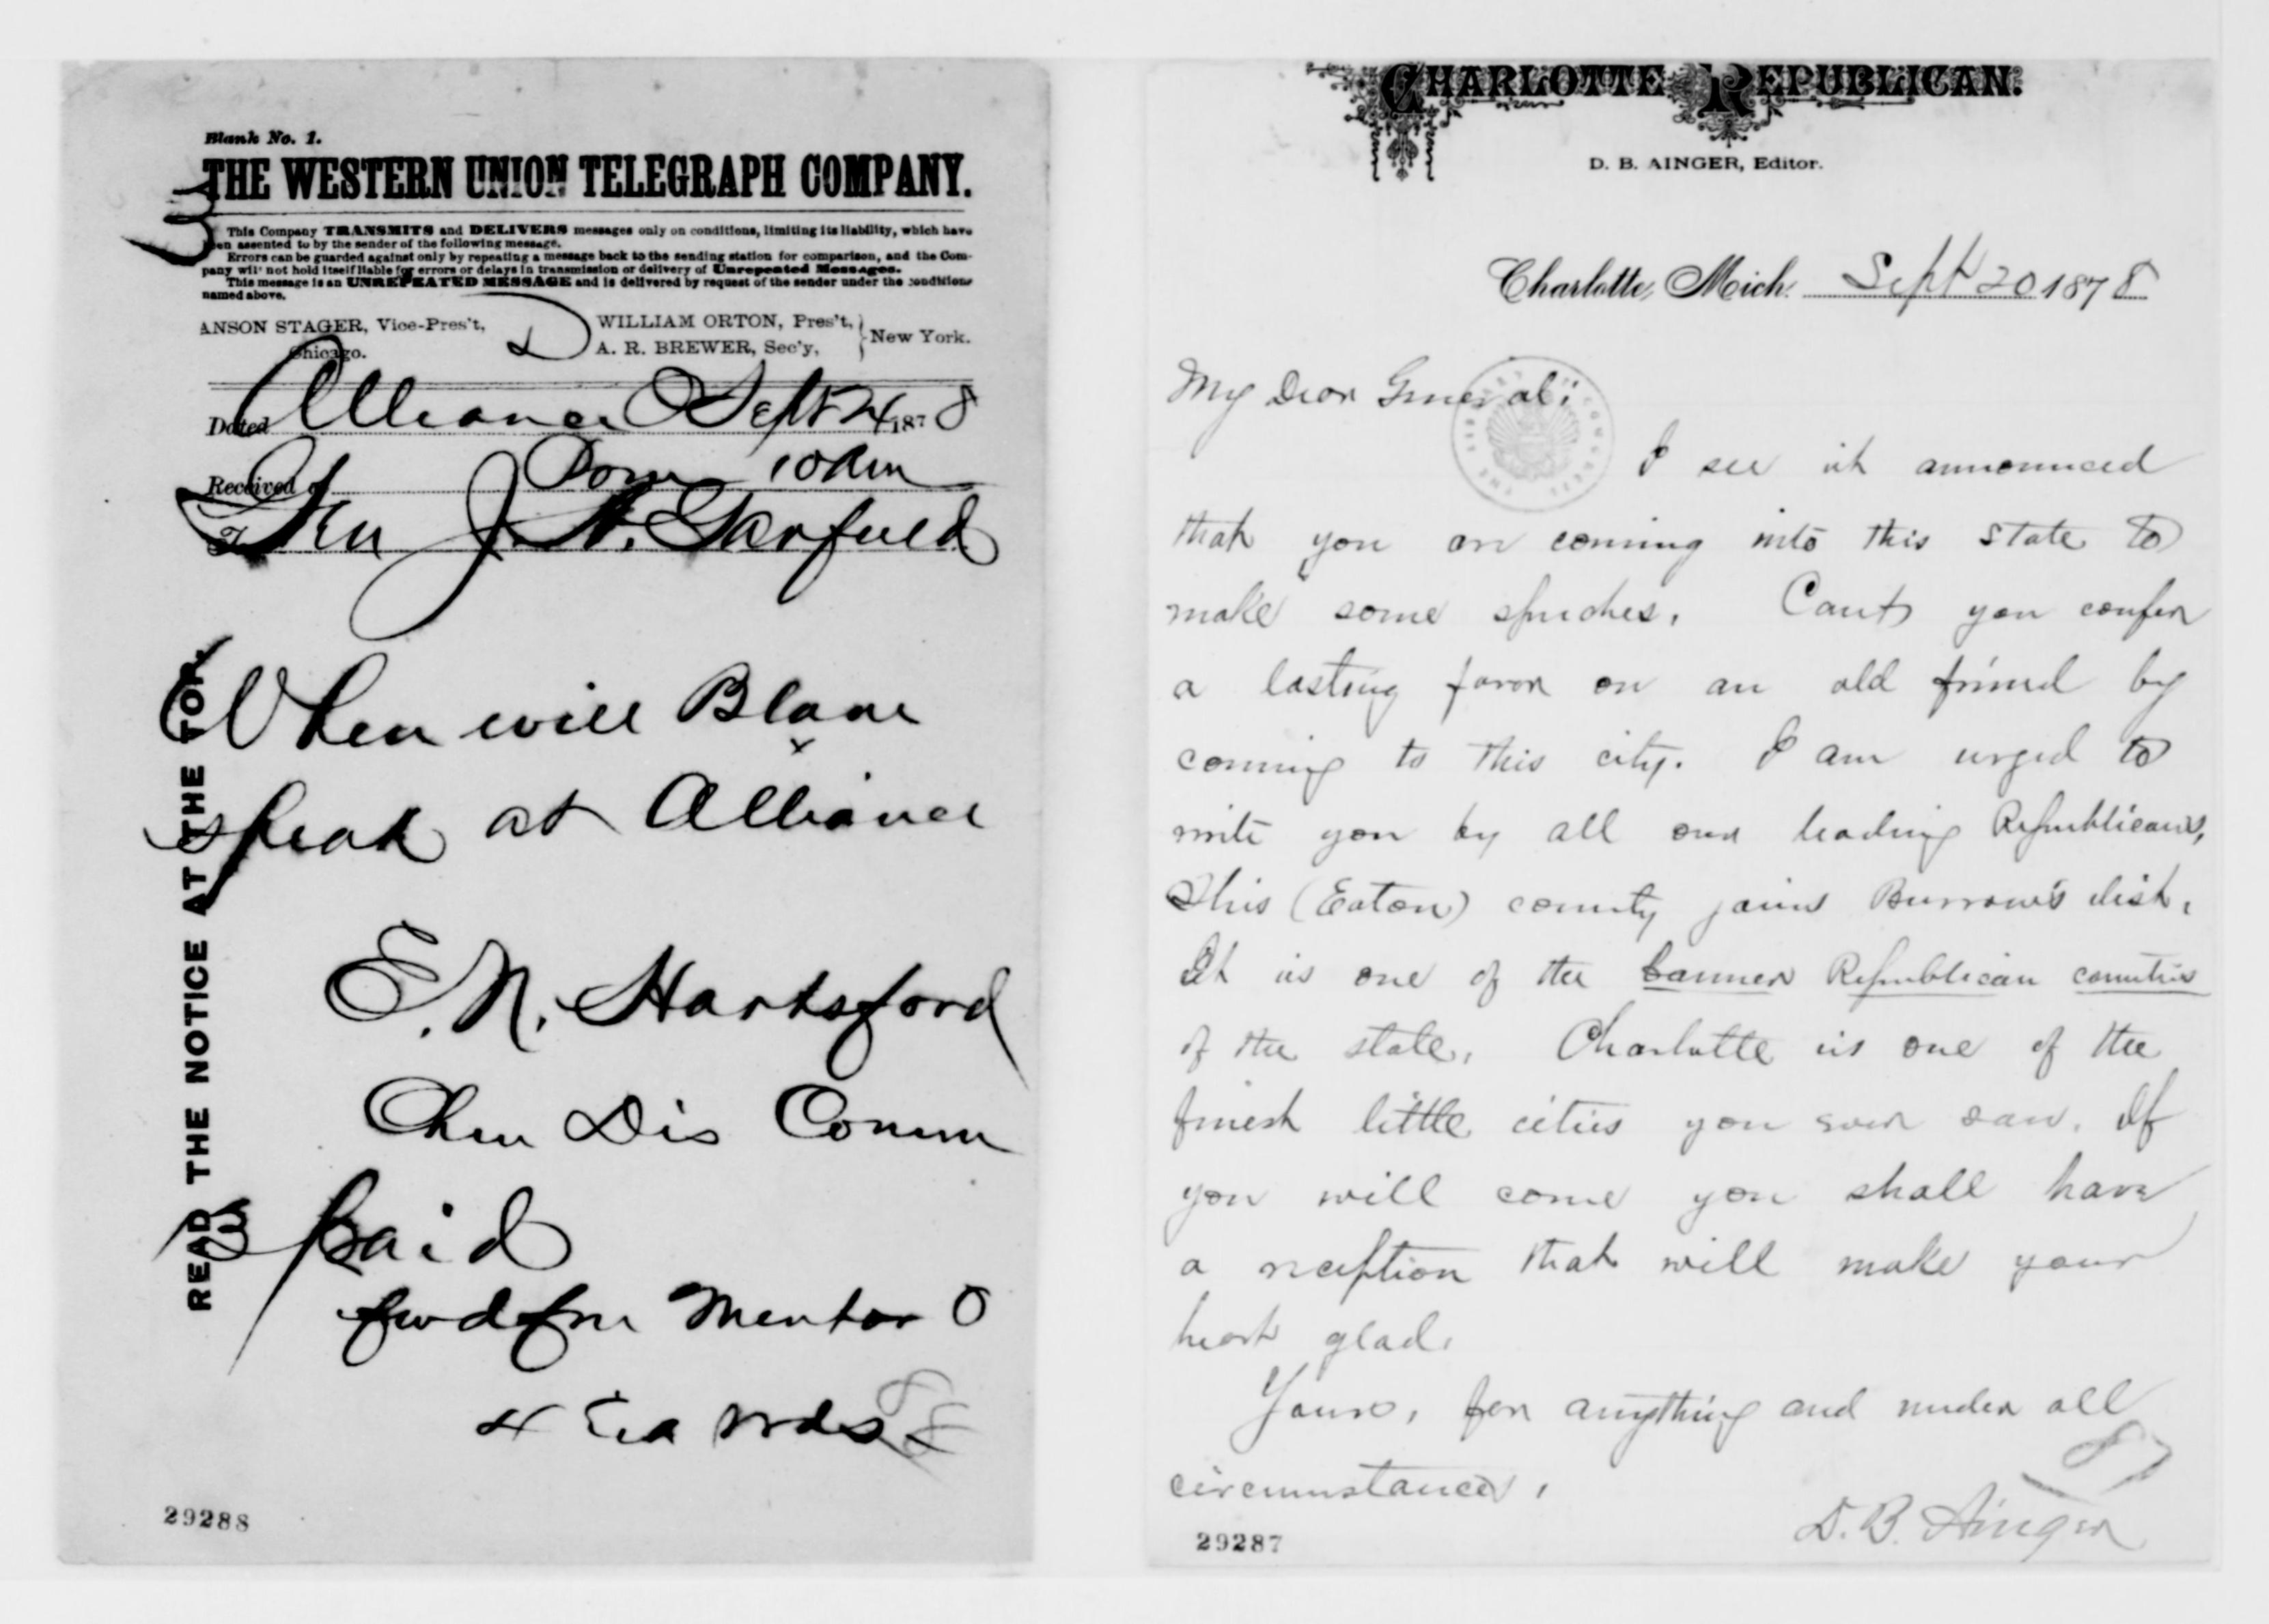 Blank No. 1.
THE WESTERN UNION TELEGRAPH COMPANY.
This Company TRANSMITS and DELIVERS messages only on conditions, limiting its liability, which have
been assented to by the sender of the following message.
Errors can be guarded against only by repeating a message back to the sending station for comparison, and the Com-
pany will not hold itself liable for errors or delays in transmission or delivery of Unrepeated Messages.
This message is an UNREPEATED MESSAGE and is delivered by request of the sender under the conditions
named above.
ANSON STAGER, Vice-Pres't,
Chicago.
WILLIAM ORTON, Pres't,
A. R. BREWER, Sec'y,
New York.
Dated Alliance O Sept 24 1878
Received at 10 am
To Gen J. A. Garfield
When will Blane
speak at Alliance
E. N. Hartsford
Chm Dis Comm
13 Paid
fwd fm Mentor O
READ THE NOTICE AT THE TOP.
29288
CHARLOTTE REPUBLICAN.
D. B. AINGER, Editor.
Charlotte, Mich. Sept 20 1878
My Dear General:
I see it announced
that you are coming into this state to
make some speeches. Cant you confer
a lasting favor on an old friend by
coming to this city. I am urged to
write you by all our leading Republicans,
This (Eaton) county joins Burrow's dist.
It is one of the banner Republican counties
of the state. Charlotte is one of the
finest little cities you ever saw. If
you will come you shall have
a reception that will make your
heart glad.
Yours, for anything and under all
circumstances,
D. B. Ainger
29287